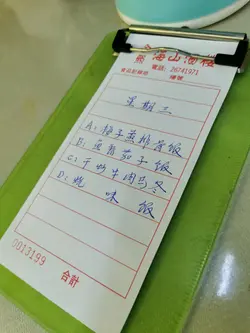 海山酒樓
電話: 26741971
星期三
A: 梅子蒸排骨飯
B: 魚香茄子飯
C: 干炒牛肉烏冬
D: 燒味飯
0013199
合計